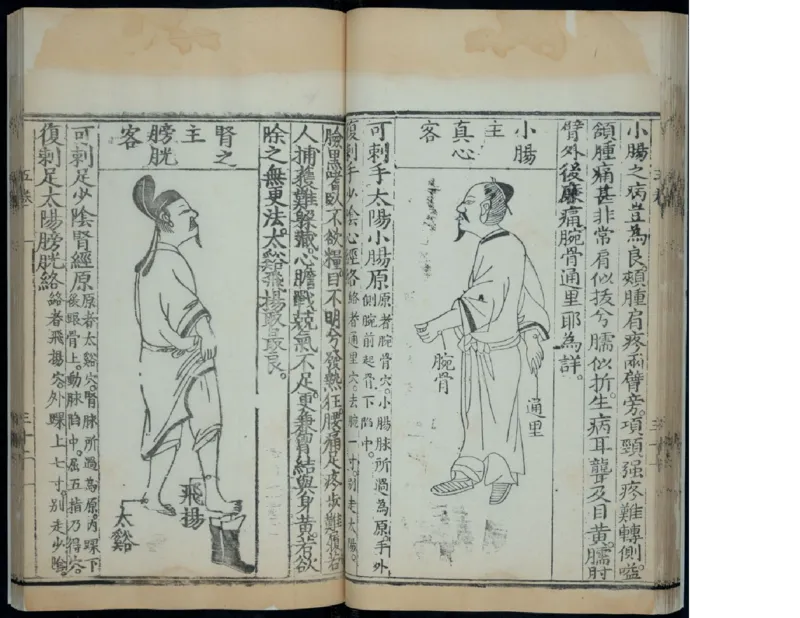 小腸之病豈為良頰腫肩疼兩臂旁項頸强疼難轉側嗌
頷腫痛甚非常肩似拔兮臑似折生病耳聾及目黃臑肘
臂外後廉痛腕骨通里耶為詳
小腸
主
真心
客
腕骨
通里
可刺手太陽小腸原原者腕骨穴小腸脉所過為原手外
側腕前起骨下陷中
復刺手少陰心經絡絡者通里穴去腕一寸別走太陽
臉黑嗜臥不欲糧目不明兮發熱狂腰痛足疼步難履若
人捕獲難躲藏心膽戰兢氣不足更兼胷結與身黃若欲
除之無更法太谿飛揚取最良
腎之
主
膀胱
客
飛揚
太谿
可刺足少陰腎經原原者太谿穴腎脉所過為原內踝下
後跟骨上動脉陷中屈五指乃得穴
復刺足太陽膀胱絡絡者飛揚穴外踝上七寸別走少陰
五卷
三十二